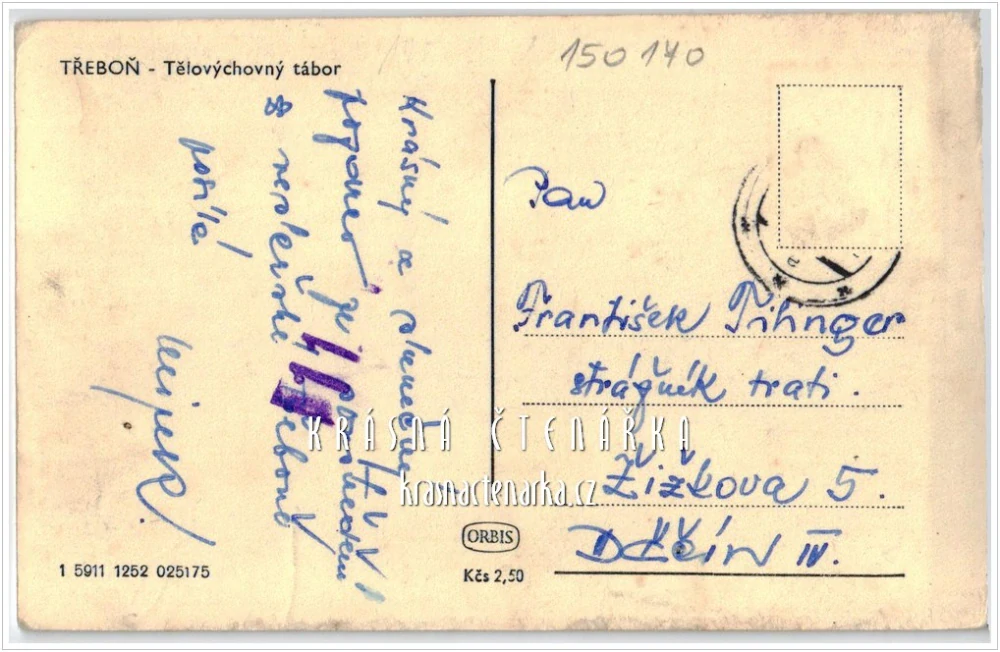 150 140
TŘEBOŇ - Tělovýchovný tábor
Krásný a slunečný
pozdrav ze
Třeboně
posílá
Pan
František Tihnger
strážník trati.
Žižkova 5.
Děčín IV.
KRÁSNÁ ČTENÁŘKA
krasnactenarka.cz
ORBIS
Kčs 2,50
1 5911 1252 025175